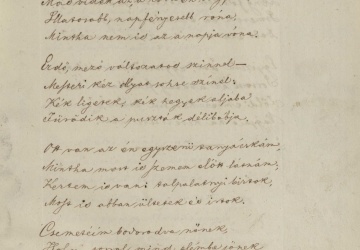 Illatosabb, napfényesebb róna,
Mintha nem is az a napja vóna.
Erdő, mező változatos színnel –
Mesteri kéz olyat sohse színel;
Kék ligetek, kék hegyek aljába
Tűrődik a puszták délibábja.
Ott van az én egyszerű tanyácskám,
Mintha most is szemem előtt látnám,
Kertem is van: talpalatnyi birtok,
Most is abban ültetek és irtok.
Csemetéim bodorodva nőnek,
mind elémbe jönek